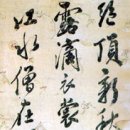 絕頂新秋
露滴衣裳
江水僧在